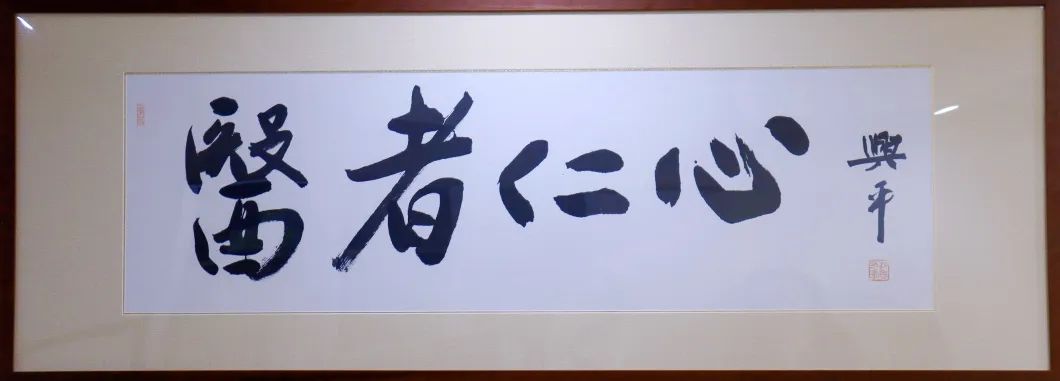 醫者仁心
興平